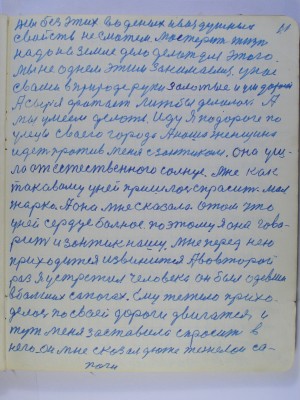 мы без этих водяных и воздушных
свойств не сможем мастерить жизнь
надо на земле дело делать для этого.
мы не одни этим занимались, у нас
с вами в природе руки золотые и ум дорогой
А сырья хватает лишь бы делали. А
мы умеем делать. Иду я по дороге по
улице своего города А наша женщина
идет против меня с зонтиком. Она
от естественного солнца. Мне как
таковому у ней пришлось спросить. мол
жарко. А она мне сказала о том что
у ней сердце больное. поэтому я она гово-
рит и зонтик ношу. мне перед нею
приходится извинится А во второй
раз я устретил человека он был одевши
в больших сапогах. Ему тяжело прихо-
делось по своей дороги двигатся, и
тут меня заставило спросить в
него. он мне сказал дюже тежолаи са-
поги